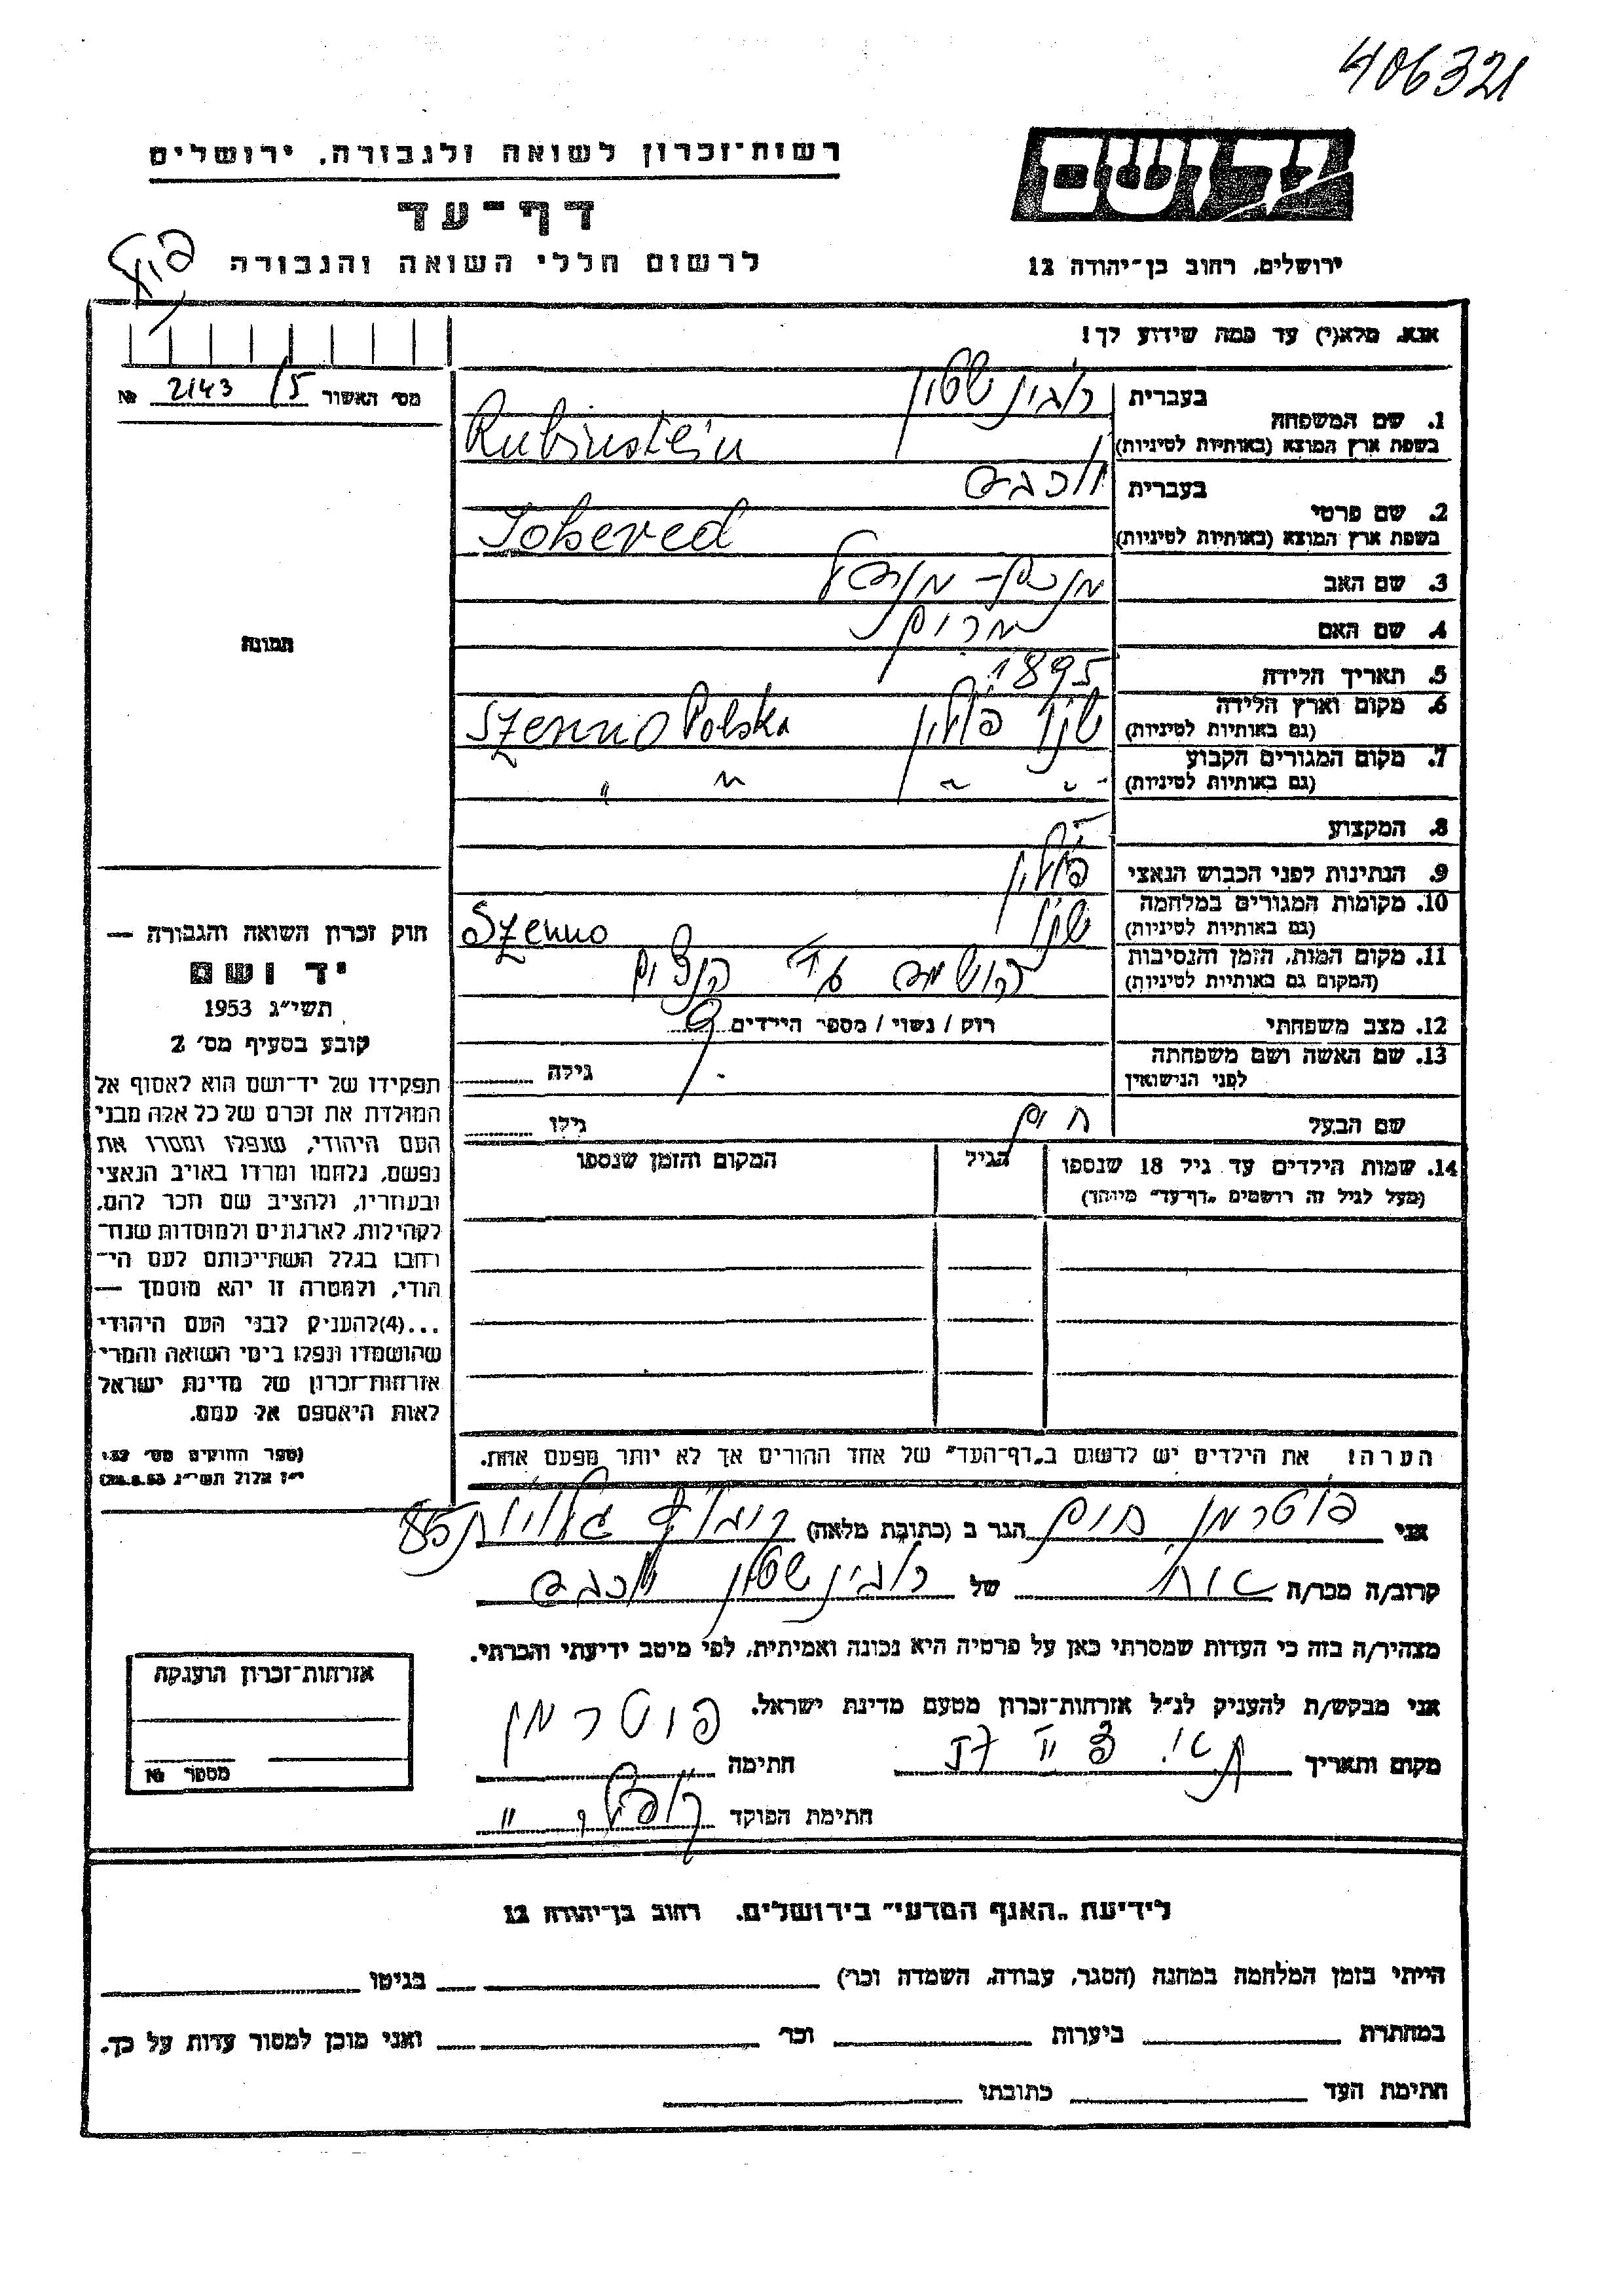 406321
יד ושם
רשות־זכרון לשואה ולגבורה, ירושלים
דף־עד
לרשום חללי השואה והגבורה
ירושלים, רחוב בן־יהודה 12
אנא, מלא(י) עד כמה שידוע לך!
מס׳ האשור 2143/5 №
1. שם המשפחה
בעברית רובינשטיין
בשפת ארץ המוצא (באותיות לטיניות) Rubinstein
2. שם פרטי
בעברית יוכבד
בשפת ארץ המוצא (באותיות לטיניות) Joheved
3. שם האב מנחם-מנדל
4. שם האם מרים
5. תאריך הלידה 1895
6. מקום וארץ הלידה
(גם באותיות לטיניות) שנו פולין Szenno Polska
7. מקום המגורים הקבוע
(גם באותיות לטיניות) " " " "
8. המקצוע
9. הנתינות לפני הכבוש הנאצי פולין
10. מקומות המגורים במלחמה
(גם באותיות לטיניות) שנו Szenno
11. מקום המות, הזמן והנסיבות
(המקום גם באותיות לטיניות) הושמד ע"י הנצים
12. מצב משפחתי רווק / נשוי / מספר הילדים
13. שם האשה ושם משפחתה
לפני הנישואין גילה
שם הבעל חיים גילו
14. שמות הילדים עד גיל 18 שנספו הגיל המקום והזמן שנספו
(מעל לגיל זה רושמים „דף־עד״ מיוחד)
הערה! את הילדים יש לרשום ב„דף־העד״ של אחד ההורים אך לא יותר מפעם אחת.
תמונה
חוק זכרון השואה והגבורה —
יד ושם
תשי״ג 1953
קובע בסעיף מס׳ 2
תפקידו של יד־ושם הוא לאסוף אל
המולדת את זכרם של כל אלה מבני
העם היהודי, שנפלו ומסרו את
נפשם, נלחמו ומרדו באויב הנאצי
ובעוזריו, ולהציב שם וזכר להם,
לקהילות, לארגונים ולמוסדות שנח־
רבו בגלל השתייכותם לעם הי־
הודי, ולמטרה זו יהא מוסמך —
...(4)להעניק לבני העם היהודי
שהושמדו ונפלו בימי השואה והמרי
אזרחות־זכרון של מדינת ישראל
לאות היאספם אל עמם.
(ספר החוקים מס׳ 132,
י״ז אלול תשי״ג 28.8.53)
אני פוטרמן חיים הגר ב (כתובת מלאה) 85
קרוב/ה מכר/ה אח של רובינשטיין יוכבד
מצהיר/ה בזה כי העדות שמסרתי כאן על פרטיה היא נכונה ואמיתית, לפי מיטב ידיעתי והכרתי.
אני מבקש/ת להעניק לנ״ל אזרחות־זכרון מטעם מדינת ישראל.
מקום ותאריך חתימה פוטרמן
חתימת הפוקד
אזרחות־זכרון הוענקה
מספר №
לידיעת „האגף המדעי״ בירושלים, רחוב בן־יהודה 12
הייתי בזמן המלחמה במחנה (הסגר, עבודה, השמדה וכו׳) בגיטו
במחתרת ביערות וכו׳ ואני מוכן למסור עדות על כך.
חתימת העד כתובתו